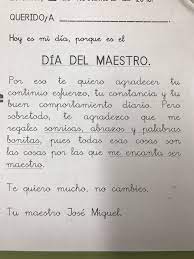 de noviembre de
QUERIDO/A
Hoy es mi día, porque es el
DÍA DEL MAESTRO.
Por eso te quiero agradecer tu
continuo esfuerzo, tu constancia y tu
buen comportamiento diario. Pero
sobretodo, te agradezco que me
regales sonrisas, abrazos y palabras
bonitas, pues todas esas cosas son
las cosas por las que me encanta ser
maestro.
Te quiero mucho, no cambies.
Tu maestro José Miguel.